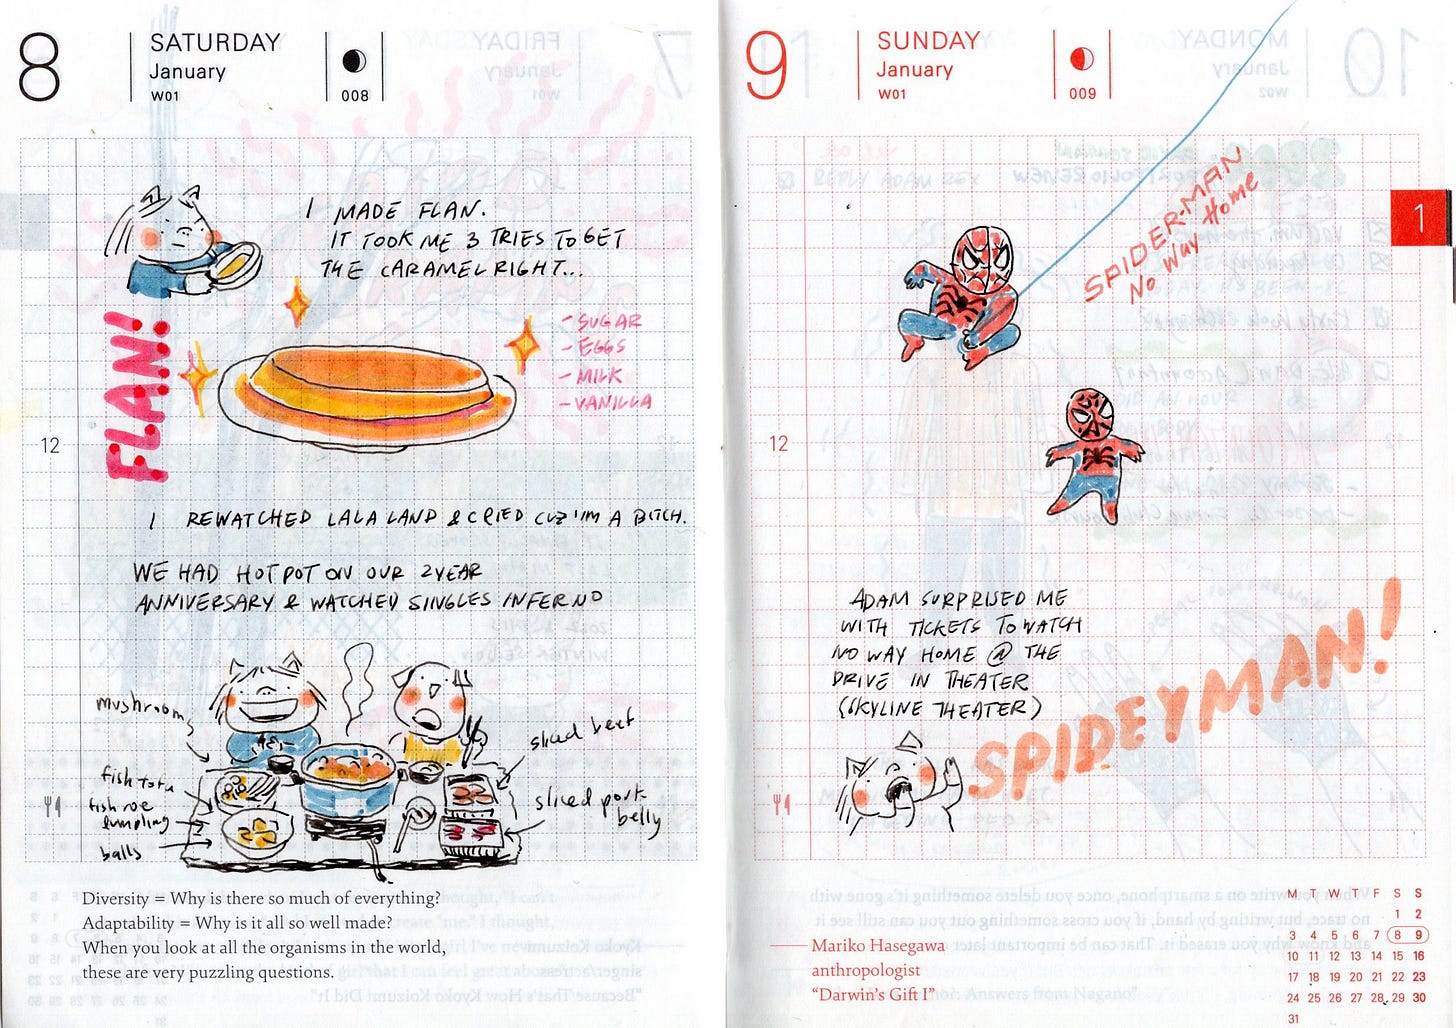 8
SATURDAY
January
W01
008
I MADE FLAN.
IT TOOK ME 3 TRIES TO GET
THE CARAMEL RIGHT...
FLAN!
- SUGAR
- EGGS
- MILK
- VANILLA
12
I REWATCHED LALA LAND & CRIED CUZ I'M A BITCH.
WE HAD HOTPOT ON OUR 2 YEAR
ANNIVERSARY & WATCHED SINGLES INFERNO
mushrooms
fish tofu
fish roe
dumpling
balls
sliced beef
sliced pork
belly
Diversity = Why is there so much of everything?
Adaptability = Why is it all so well made?
When you look at all the organisms in the world,
these are very puzzling questions.
9
SUNDAY
January
W01
009
1
SPIDER-MAN
No Way Home
12
ADAM SURPRISED ME
WITH TICKETS TO WATCH
NO WAY HOME @ THE
DRIVE IN THEATER
(SKYLINE THEATER)
SPIDEYMAN!
Mariko Hasegawa
anthropologist
“Darwin's Gift I”
M T W T F S S
1 2
3 4 5 6 7 8 9
10 11 12 13 14 15 16
17 18 19 20 21 22 23
24 25 26 27 28 29 30
31